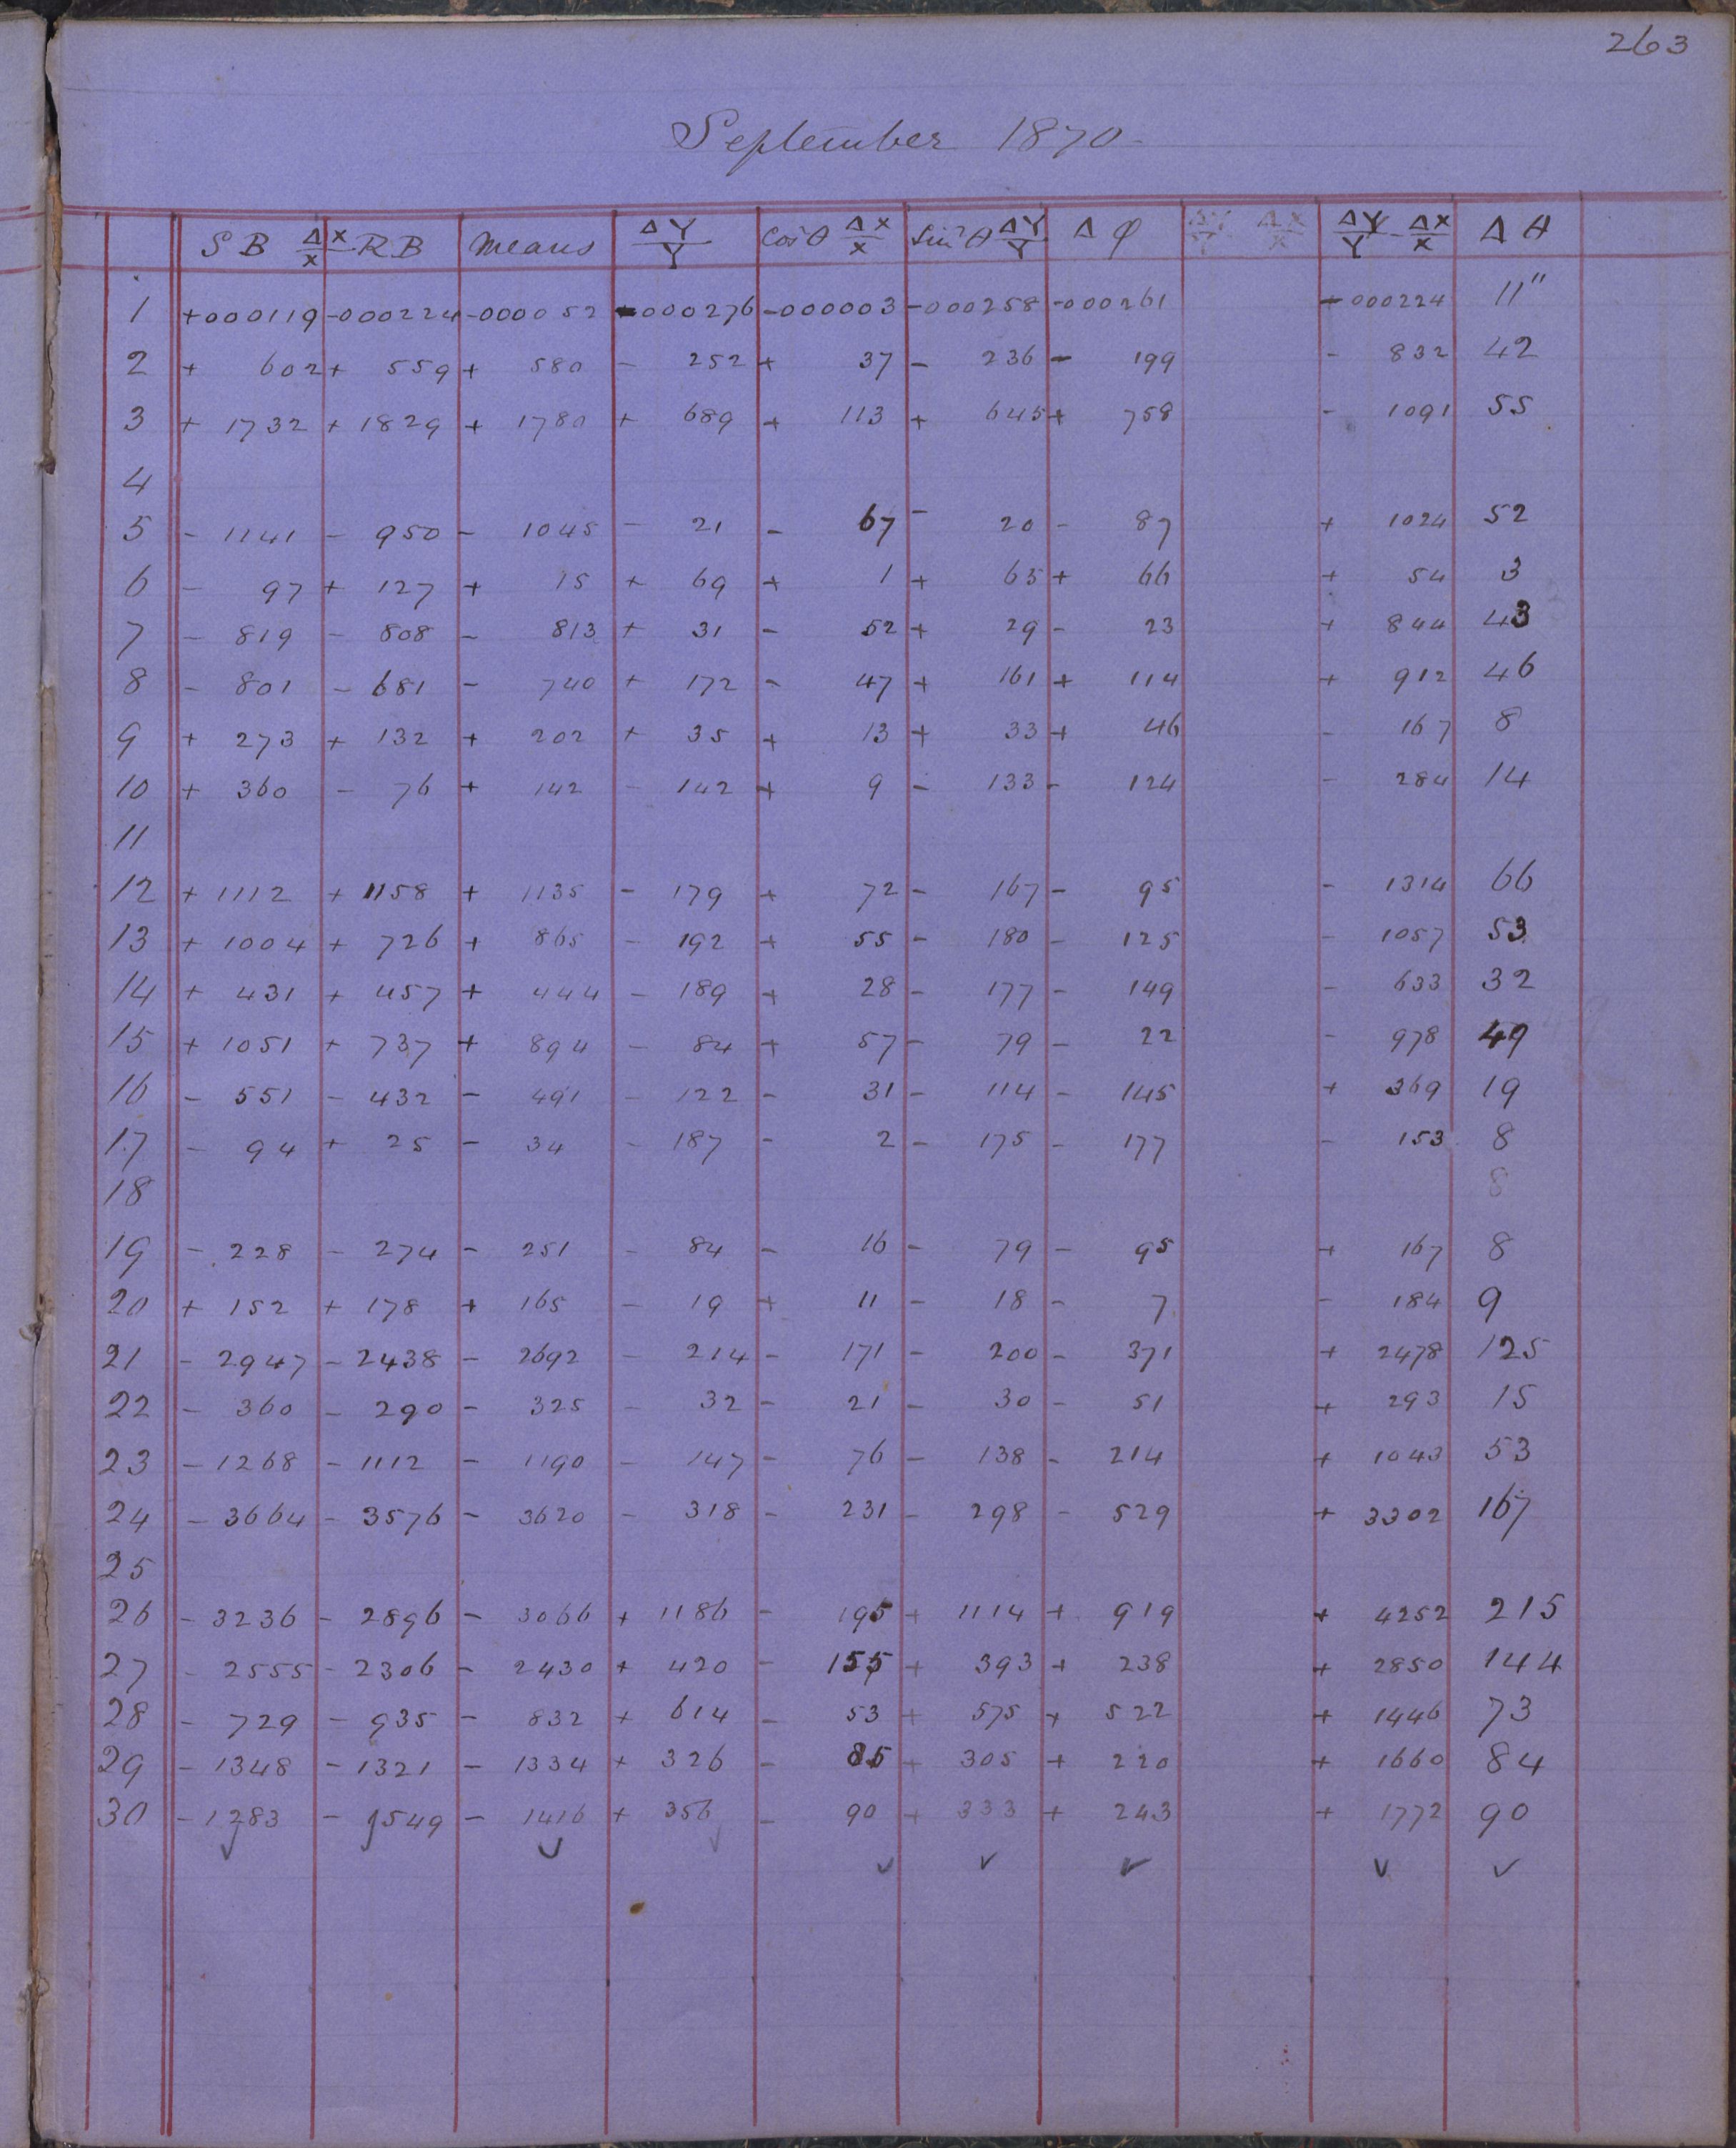 263
September 1870.
S B ΔX/X R B Means ΔY/Y Cos²θ ΔX/X Sin²θ ΔY/Y Δ φ ΔY/Y ΔX/X ΔY/Y - ΔX/X Δ θ
1 +000119 -000224 -000052 -000276 -000003 -000258 -000261 -000224 11"
2 + 602 + 559 + 580 - 252 + 37 - 236 - 199 - 832 42
3 + 1732 + 1829 + 1780 + 689 + 113 + 645 + 758 - 1091 55
4
5 - 1141 - 950 - 1045 - 21 - 67 - 20 - 87 + 1024 52
6 - 97 + 127 + 15 + 69 + 1 + 65 + 66 + 54 3
7 - 819 - 808 - 813 + 31 - 52 + 29 - 23 + 844 43
8 - 801 - 681 - 740 + 172 - 47 + 161 + 114 + 912 46
9 + 273 + 132 + 202 + 35 + 13 + 33 + 46 - 167 8
10 + 360 - 76 + 142 - 142 + 9 - 133 - 124 - 284 14
11
12 + 1112 + 1158 + 1135 - 179 + 72 - 167 - 95 - 1314 66
13 + 1004 + 726 + 865 - 192 + 55 - 180 - 125 - 1057 53
14 + 431 + 457 + 444 - 189 + 28 - 177 - 149 - 633 32
15 + 1051 + 737 + 894 - 84 + 57 - 79 - 22 - 978 49
16 - 551 - 432 - 491 - 122 - 31 - 114 - 145 + 369 19
17 - 94 + 25 - 34 - 187 - 2 - 175 - 177 - 153 8
18 8
19 - 228 - 274 - 251 - 84 - 16 - 79 - 95 + 167 8
20 + 152 + 178 + 165 - 19 + 11 - 18 - 7 - 184 9
21 - 2947 - 2438 - 2692 - 214 - 171 - 200 - 371 + 2478 125
22 - 360 - 290 - 325 - 32 - 21 - 30 - 51 + 293 15
23 - 1268 - 1112 - 1190 - 147 - 76 - 138 - 214 + 1043 53
24 - 3664 - 3576 - 3620 - 318 - 231 - 298 - 529 + 3302 167
25
26 - 3236 - 2896 - 3066 + 1186 - 195 + 1114 + 919 + 4252 215
27 - 2555 - 2306 - 2430 + 420 - 155 + 393 + 238 + 2850 144
28 - 729 - 935 - 832 + 614 - 53 + 575 + 522 + 1446 73
29 - 1348 - 1321 - 1334 + 326 - 85 + 305 + 220 + 1660 84
30 - 1283 - 1549 - 1416 + 356 - 90 + 333 + 243 + 1772 90